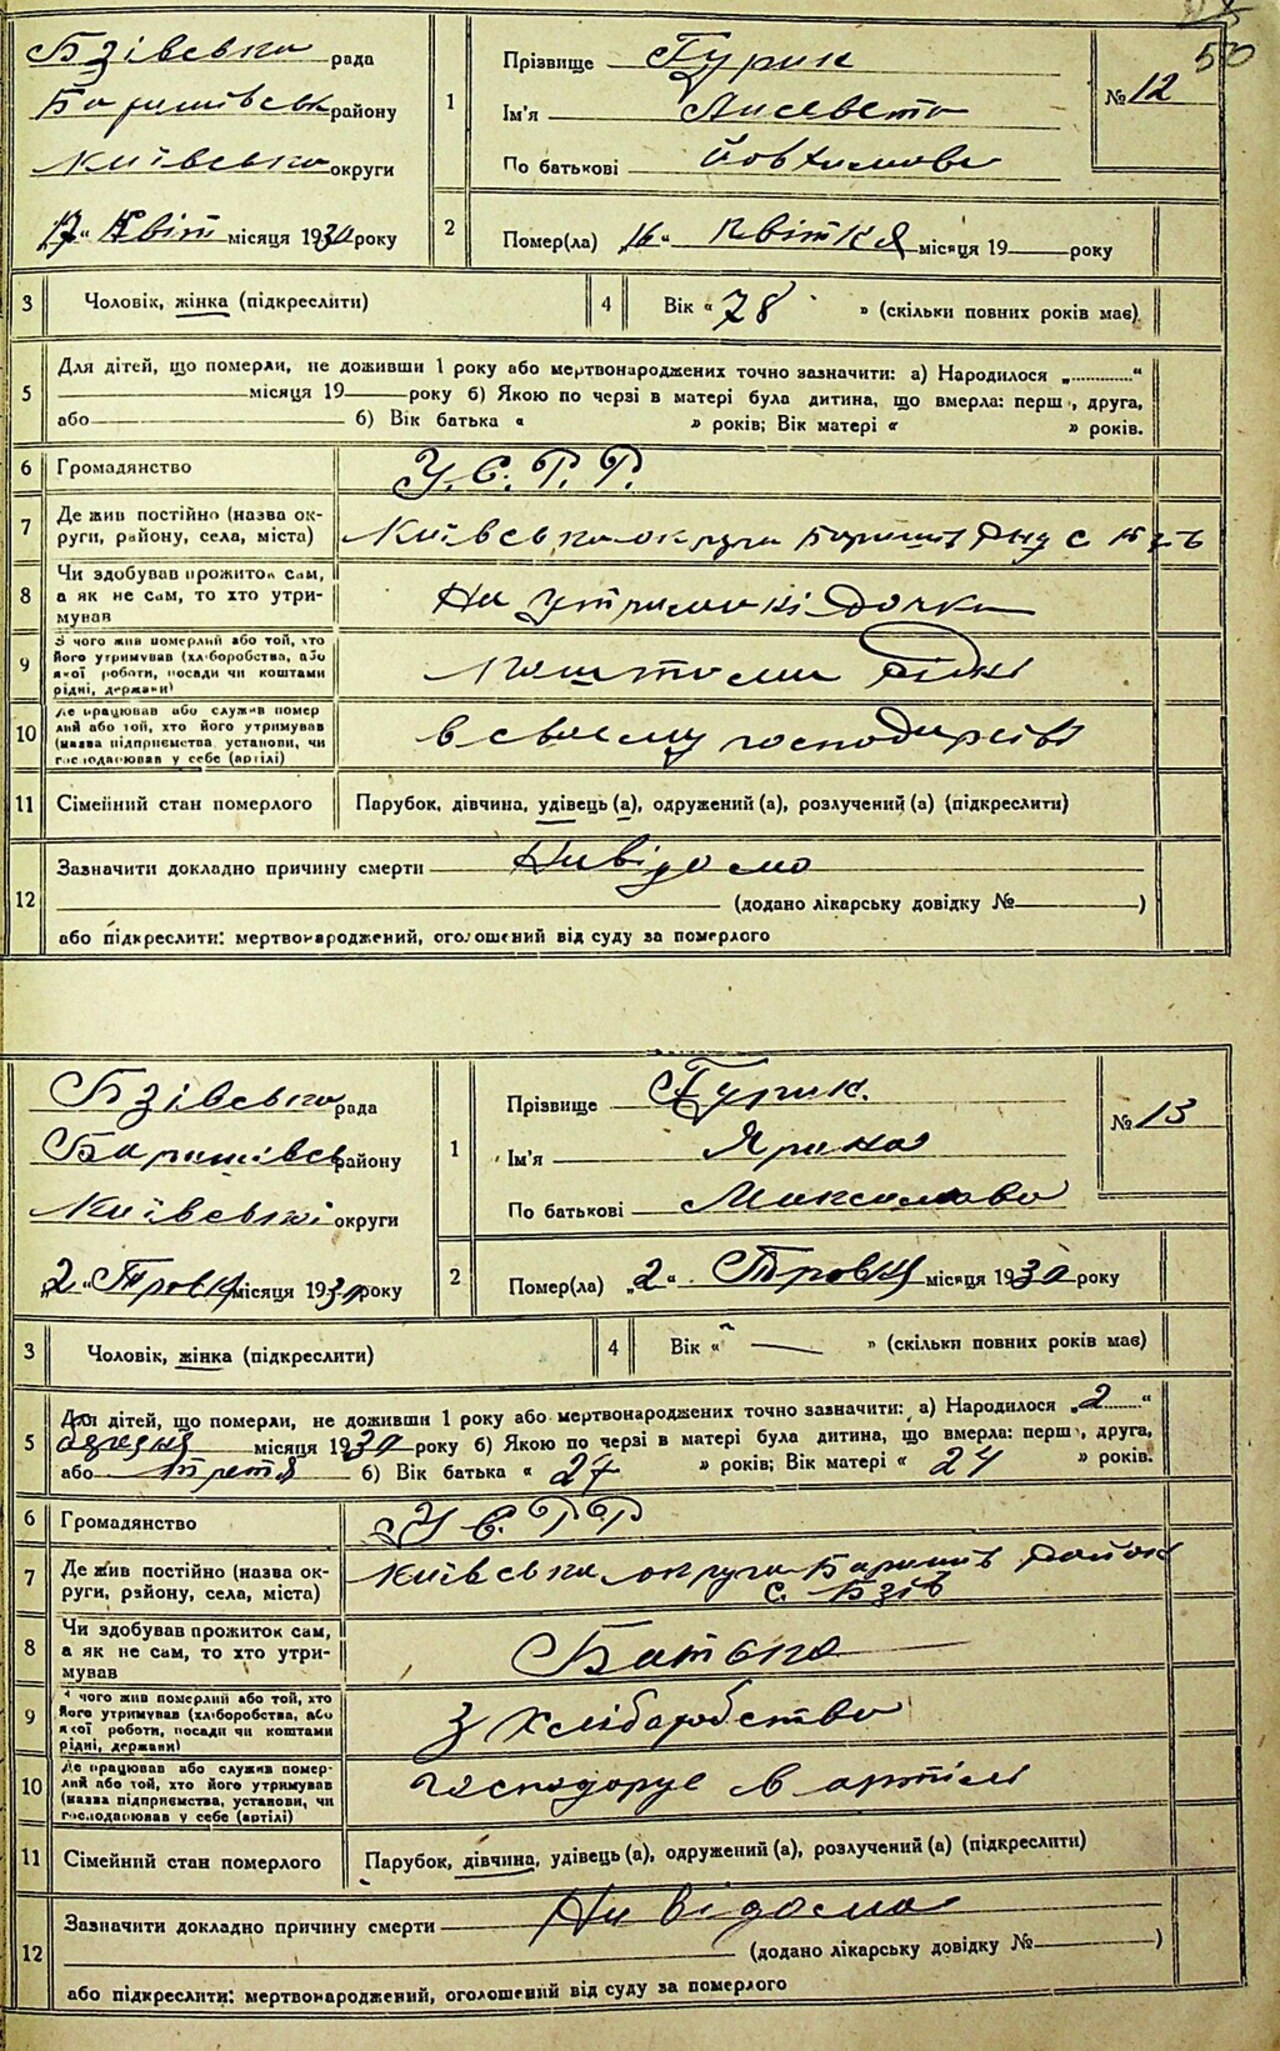 50
Бзівська рада
Баришівськ району
Київська округи
1
Прізвище Гурик
Ім'я Лисавета
По батькові Йовхимова
№ 12
17 " Квіт місяця 1930 року
2
Помер(ла) „ 16 " Квітня місяця 19 року
3
Чоловік, жінка (підкреслити)
4
Вік « 78 » (скільки повних років має)
5
Для дітей, що померли, не доживши 1 року або мертвонароджених точно зазначити: а) Народилося „............“
місяця 19 року б) Якою по черзі в матері була дитина, що вмерла: перш , друга,
або б) Вік батька « » років; Вік матері « » років.
6
Громадянство
У. С. Р. Р.
7
Де жив постійно (назва ок-
руги, району, села, міста)
Київська округа Бариші
8
Чи здобував прожиток сам,
а як не сам, то хто утри-
мував
На утриманкі дочки
9
З чого жив померлий або той, хто
його утримував (хліборобства, або
якої роботи, посади чи коштами
рідні, держави)
Коштами рідні
10
Де працював або служив помер
лий або той, хто його утримував
(назва підприємства установи, чи
господарював у себе (артілі)
в своему господарстві
11
Сімейний стан померлого
Парубок, дівчина, удівець (а), одружений (а), розлучений (а) (підкреслити)
12
Зазначити докладно причину смерти Невідомо
(додано лікарську довідку № )
або підкреслити: мертвонароджений, оголошений від суду за померлого
Бзівська рада
Баришівсь району
Київські округи
1
Прізвище Гурик.
Ім'я Ярина
По батькові Максимова
№ 13
„ 2 " Травня місяця 1930 року
2
Помер(ла) „ 2 " Травня місяця 1930 року
3
Чоловік, жінка (підкреслити)
4
Вік « — » (скільки повних років має)
5
Для дітей, що померли, не доживши 1 року або мертвонароджених точно зазначити: а) Народилося „ 2 ......“
місяця 1930 року б) Якою по черзі в матері була дитина, що вмерла: перш , друга,
або третя б) Вік батька « 27 » років; Вік матері « 24 » років.
6
Громадянство
У С. Р Р
7
Де жив постійно (назва ок-
руги, району, села, міста)
Київська округа Баришів район
с. Бзів
8
Чи здобував прожиток сам,
а як не сам, то хто утри-
мував
Батько
9
З чого жив померлий або той, хто
його утримував (хліборобства, або
якої роботи, посади чи коштами
рідні, держави)
З хліборобства
10
Де працював або служив помер-
лий або той, хто його утримував
(назва підприємства, установи, чи
господарював у себе (артілі)
Господарує в артілі
11
Сімейний стан померлого
Парубок, дівчина, удівець (а), одружений (а), розлучений (а) (підкреслити)
12
Зазначити докладно причину смерти Не відома
(додано лікарську довідку № )
або підкреслити: мертвонароджений, оголошений від суду за померлого